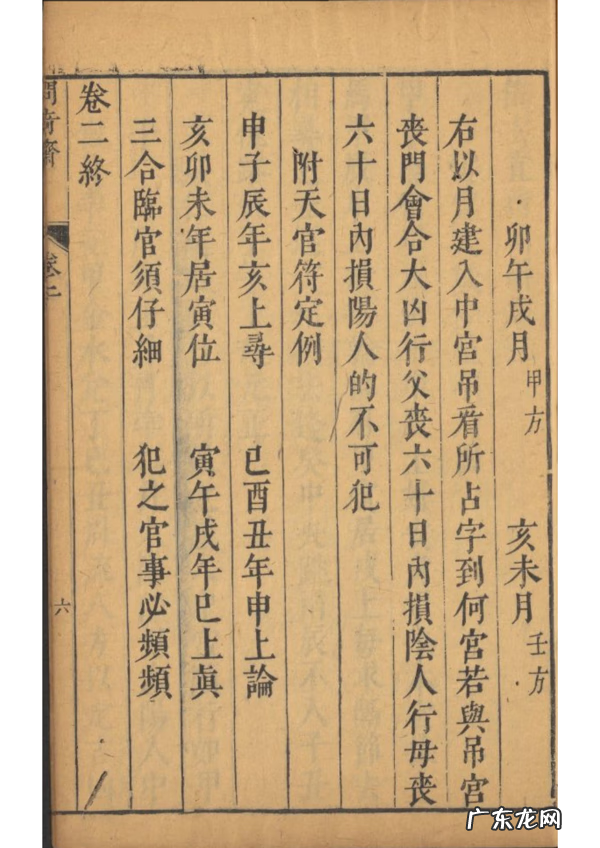 卯午戌月甲方 亥未月壬方
右以月建入中宮吊看所占字到何宮若與吊宮
喪門會合大凶行父喪六十日內損陰人行母喪
六十日內損陽人的不可犯
附天官符定例
申子辰年亥上尋 巳酉丑年申上論
亥卯未年居寅位 寅午戌年巳上眞
三合臨官須仔細 犯之官事必頻頻
卷二終
卷二
六
广东龙网